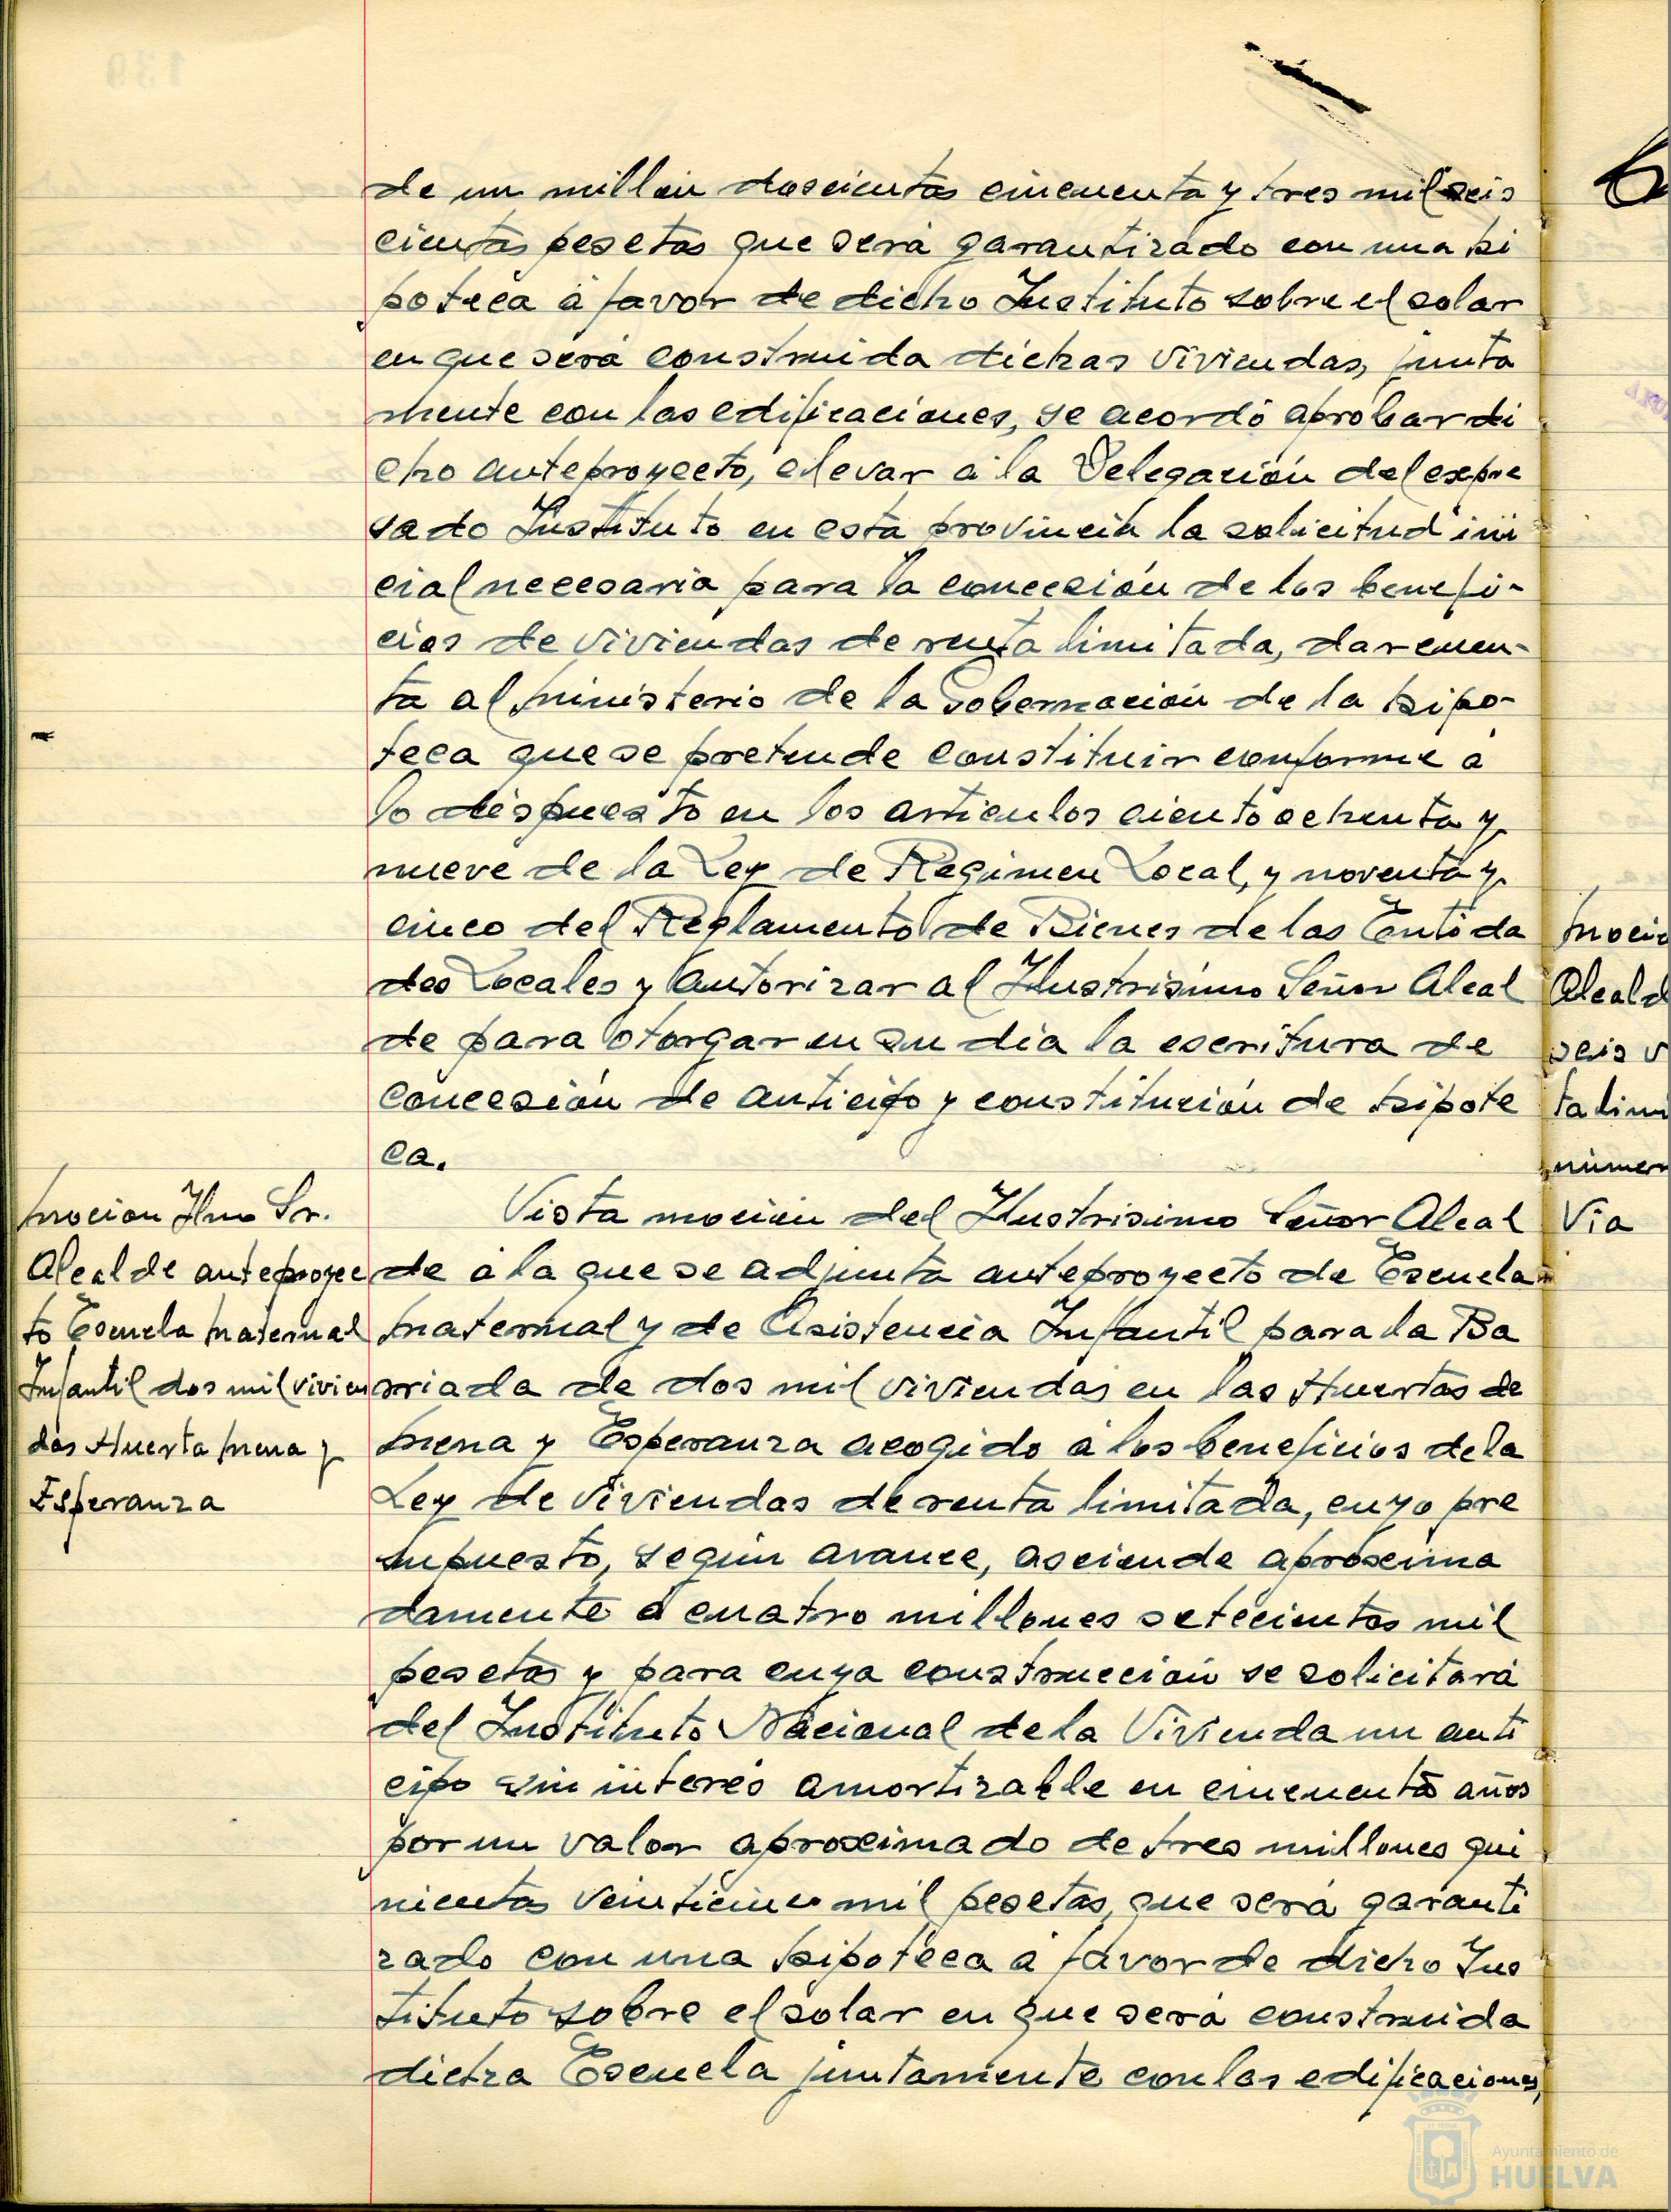 de un millon doscientas cincuenta y tres mil seis
cientas pesetas que será garantizado con una hi
poteca á favor de dicho Instituto sobre el solar
en que será construida dichas viviendas, junta
mente con las edificaciones, se acordó aprobar di
cho anteproyecto, elevar a la Delegación del expre
sado Instituto en esta provincia la solicitud ini
cial necesaria para la conceción de los benefi-
cios de viviendas de renta limitada, dar cuen-
ta al ministerio de la Gobernación de la hipo-
teca que se pretende constituir conforme a
lo dispuesto en los articulos ciento ochenta y
nueve de la Ley de Regimen Local, y noventa y
cinco del Reglamento de Bienes de las Entida
des Locales y autorizar al Ilustrisimo Señor Alcal
de para otorgar en su dia la escritura de
concesión de anticipo y constitución de hipote
ca.
mocion Ilmo Sr.
Alcalde anteproyec
to Escuela maternal
Infantil dos mil vivien
das Huerta mena y
Esperanza
Vista moción del Ilustrisimo Señor Alcal
de a la que se adjunta anteproyecto de Escuela
maternal y de Asistencia Infantil para la Ba
rriada de dos mil viviendas en las Huertas de
mena y Esperanza acogido a los beneficios de la
Ley de Viviendas de renta limitada, cuyo pre
supuesto, según avance, asciende aproxima
damente a cuatro millones setecientas mil
pesetas y para cuya construcción se solicitará
del Instituto Nacional de la Vivienda un anti
cipo sin interés amortizable en cincuenta años
por un valor aproximado de tres millones qui
nientas veinticinco mil pesetas, que será garanti
zado con una hipoteca a favor de dicho Ins
tituto sobre el solar en que será construida
dicha Escuela juntamente con las edificaciones,
moció
Alcald
seis v
ta limi
númer
Via
Ayuntamiento de
HUELVA